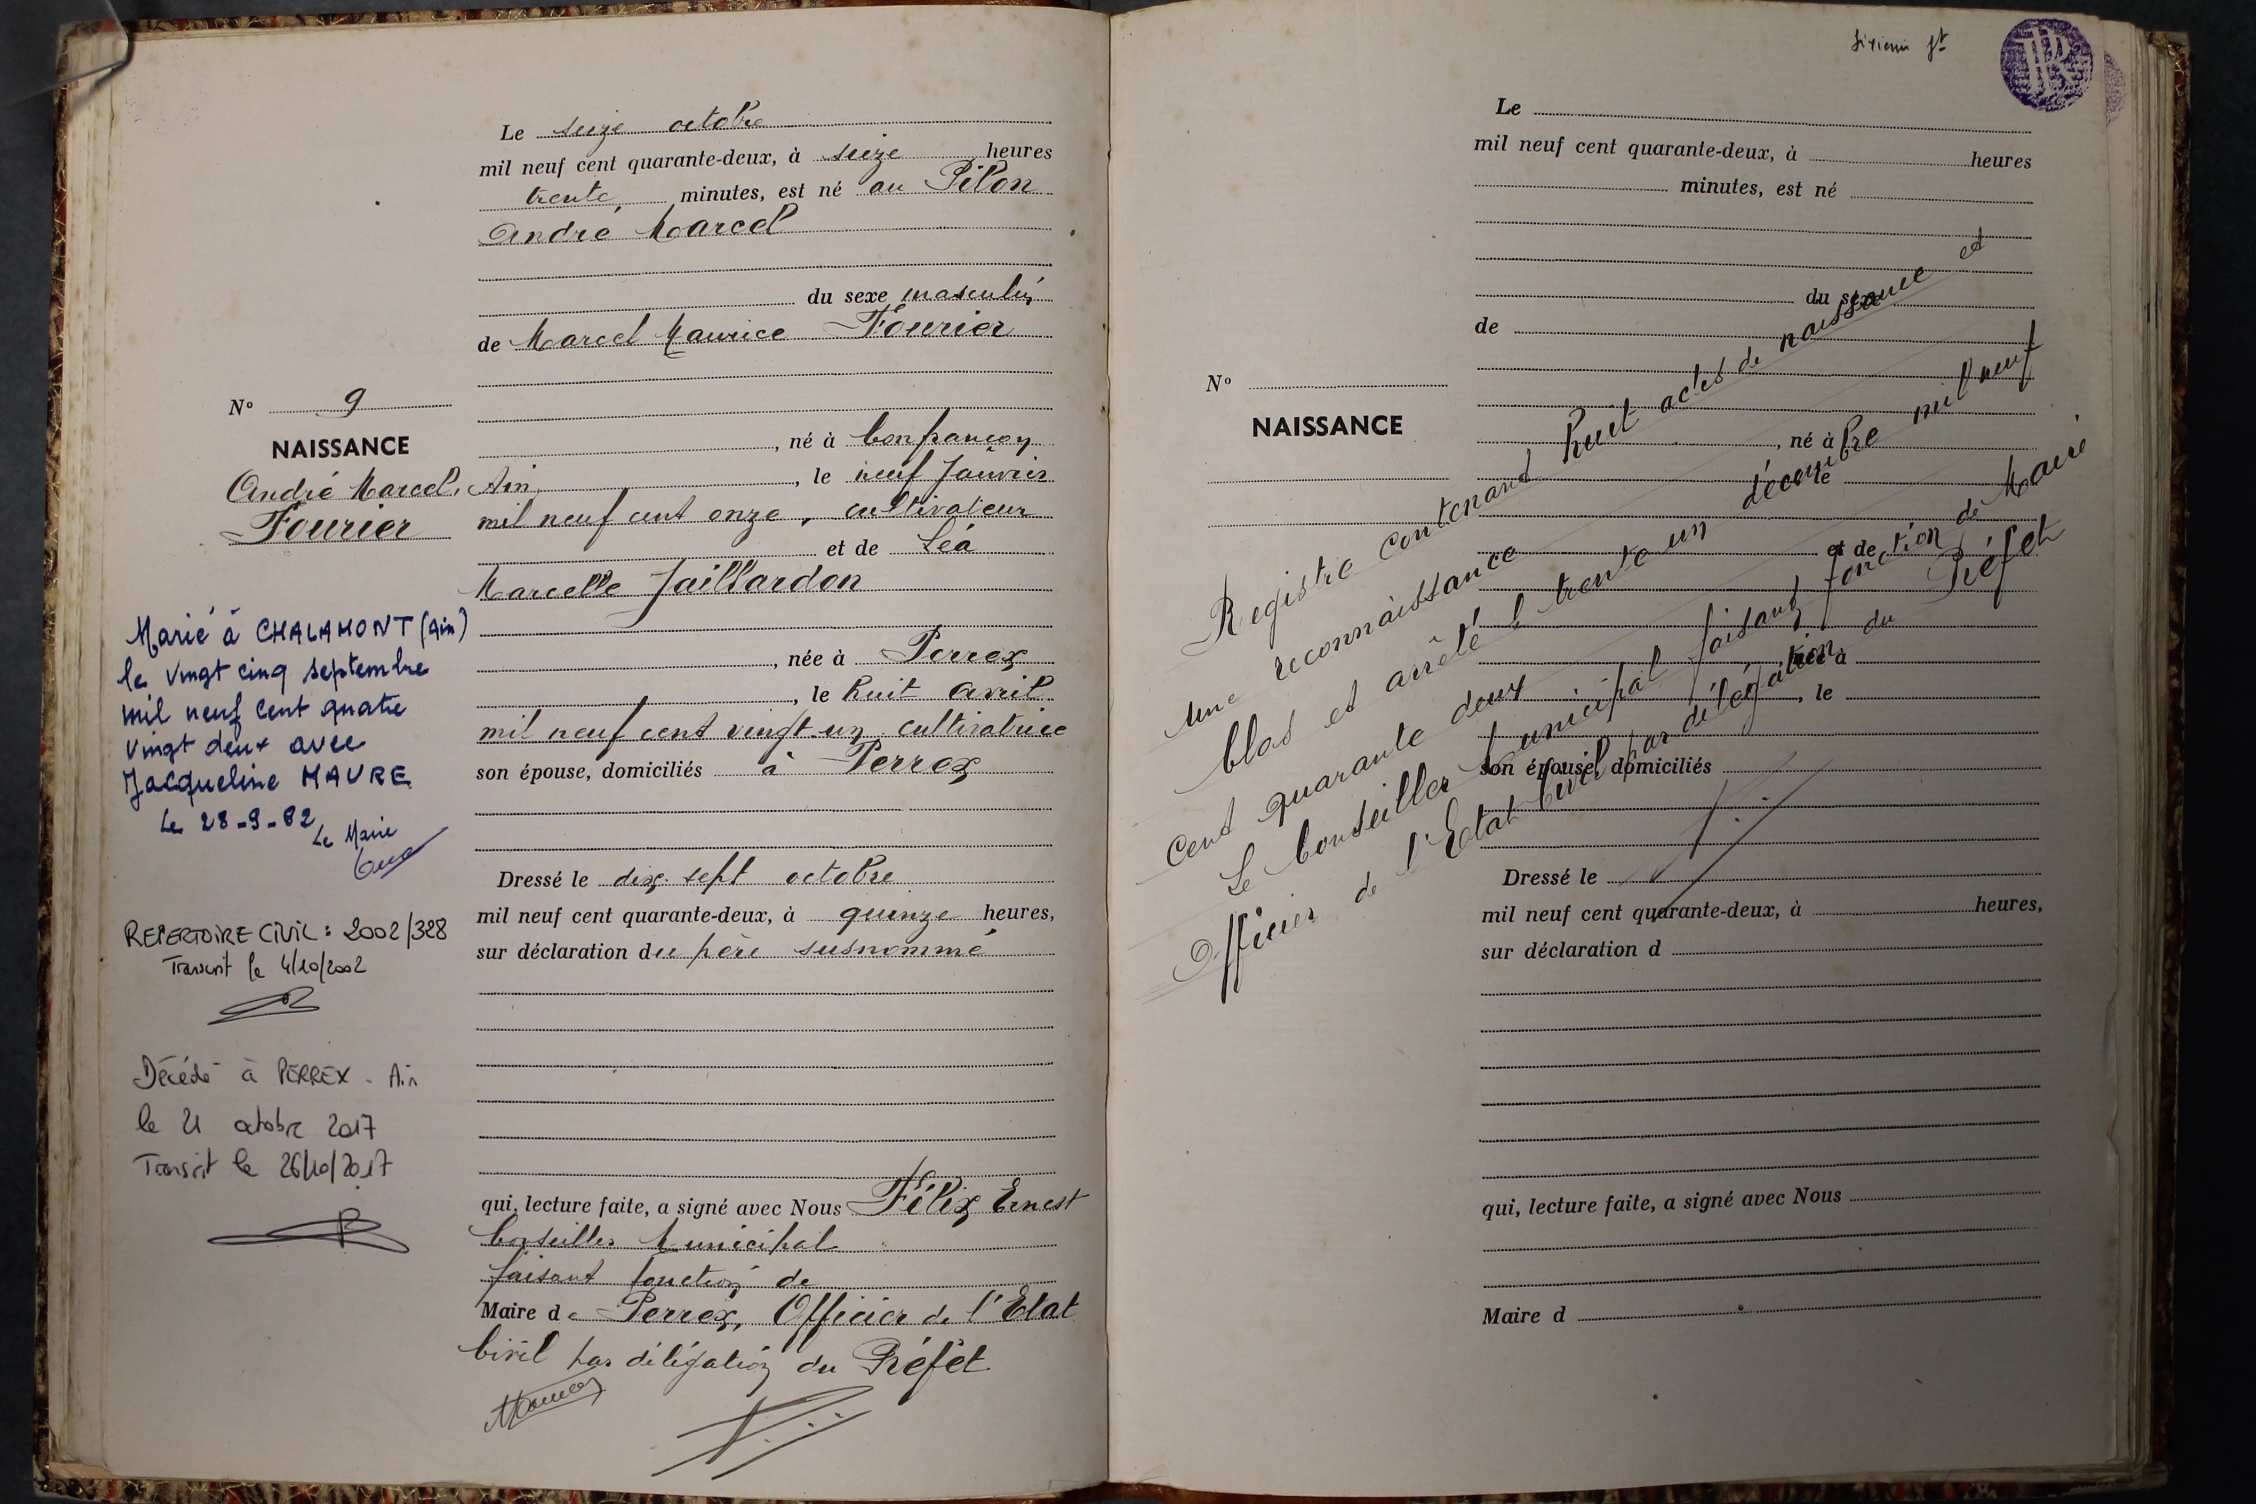 Le seize octobre
mil neuf cent quarante-deux, à seize heures
trente minutes, est né au Pilon
André Marcel
du sexe masculin
de Marcel Maurice Fourier
, né à Confrançon
Ain , le neuf Janvier
mil neuf cent onze, cultivateur
et de Léa
Marcelle Jaillardon
, née à Perrex
, le huit avril
mil neuf cent vingt-un cultivatrice
son épouse, domiciliés à Perrex
Dressé le dix-sept octobre
mil neuf cent quarante-deux, à quinze heures,
sur déclaration du père susnommé
qui, lecture faite, a signé avec Nous Félix Ernest
Conseiller Municipal
faisant fonction de
Maire de Perrex, Officier de l'Etat
Civil par délégation du Préfet
N° 9
NAISSANCE
André Marcel.
Fourier
Marié à CHALAMONT (Ain)
le vingt cinq septembre
mil neuf cent quatre
vingt deux avec
Jacqueline MAVRE
Le 28-9-82
Le Maire
REPERTOIRE CIVIL : 2002/328
Transcrit le 4/10/2002
Décédé à PERREX - Ain
le 21 octobre 2017
Transcrit le 26/10/2017
Le
mil neuf cent quarante-deux, à heures
minutes, est né
du sexe
de
, né à
, le
et de
née à
, le
son épouse, domiciliés
Dressé le
mil neuf cent quarante-deux, à heures,
sur déclaration d
qui, lecture faite, a signé avec Nous
Maire d
N°
NAISSANCE
Registre contenant huit actes de naissance et
une reconnaissance
Clos et arrêté le trente un décembre mil neuf
cent quarante deux.
Le Conseiller Municipal faisant fonction de Maire
Officier de l'Etat Civil par délégation du Préfet